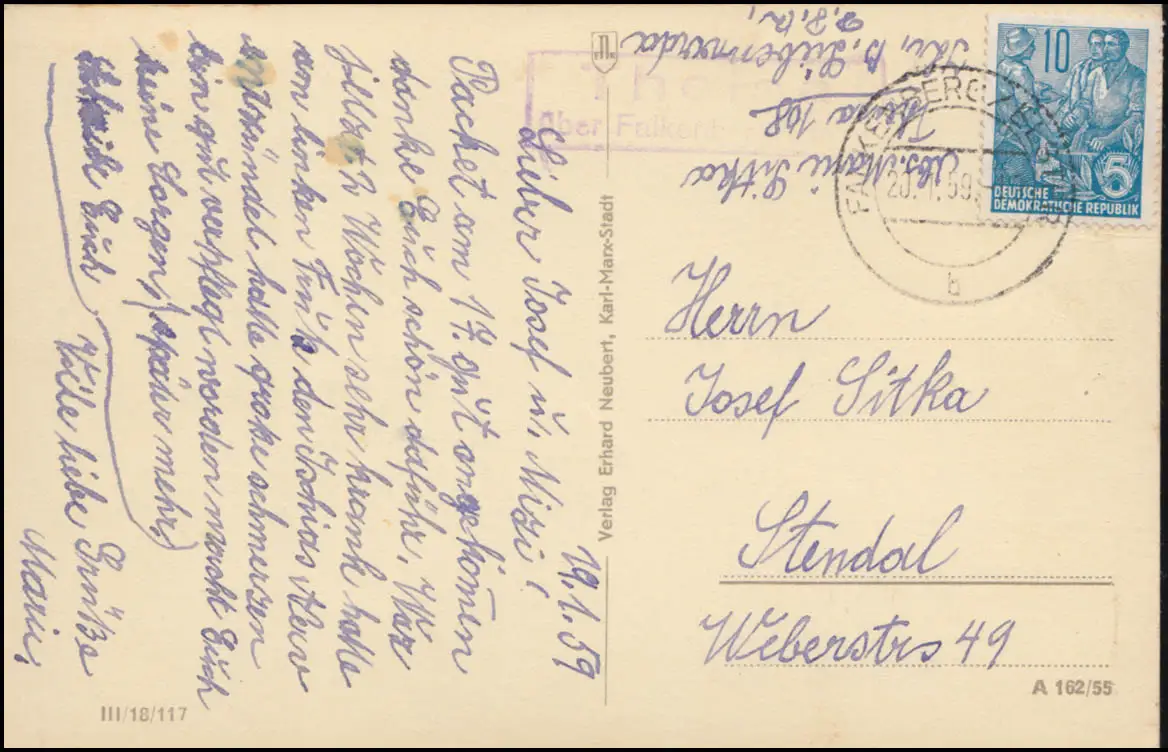 19.1.59
Lieber Josef u. Mizi!
Packet am 17. gut angekom̄en
danke Euch schön daführ. War
jetzt 2 Wochen sehr krank hatte
am linken Fuß den Ischias Nerv
entzündet hatte große schmerzen
bin gut verpflegt worden macht Euch
keine Sorgen, (später mehr.)
Euch
Viele liebe Grüße
Mari,
III/18/117
Verlag Erhard Neubert, Karl-Marx-Stadt
Abs. Mari Sitka
108
Kr. B. Liebenwerda
über Falken
FALKENBERG
20.1.59
b
10
5
DEUTSCHE
DEMOKRATISCHE REPUBLIK
Herrn
Josef Sitka
Stendal
Weberstrs 49
A 162/55